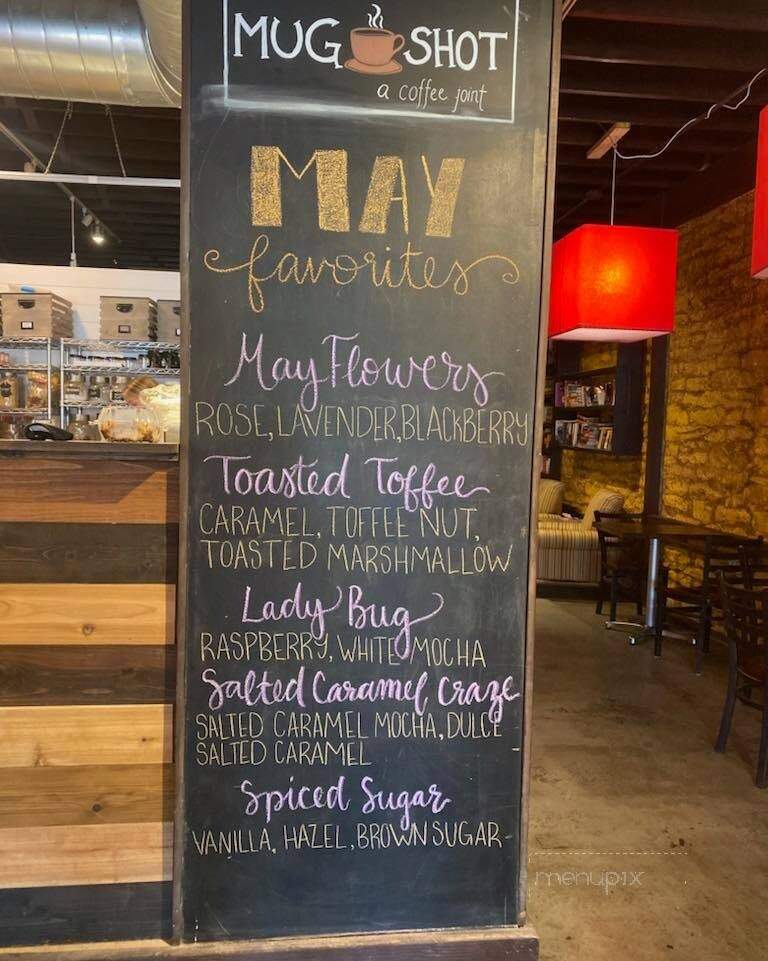 MUG SHOT
a coffee joint
MAY
favorites
May Flowers
ROSE, LAVENDER, BLACKBERRY
Toasted Toffee
CARAMEL, TOFFEE NUT,
TOASTED MARSHMALLOW
Lady Bug
RASPBERRY, WHITE MOCHA
Salted Caramel Craze
SALTED CARAMEL MOCHA, DULCE
SALTED CARAMEL
Spiced Sugar
VANILLA, HAZEL, BROWN SUGAR
menupix